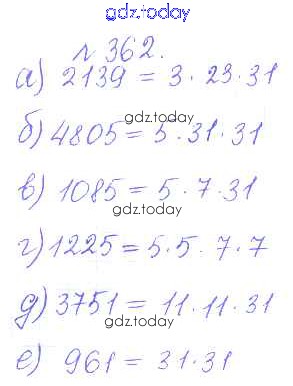 gdz.today
№ 362.
а) 2139 = 3 · 23 · 31
gdz.today
б) 4805 = 5 · 31 · 31
в) 1085 = 5 · 7 · 31
gdz.today
г) 1225 = 5 · 5 · 7 · 7
д) 3751 = 11 · 11 · 31
gdz.today
е) 961 = 31 · 31